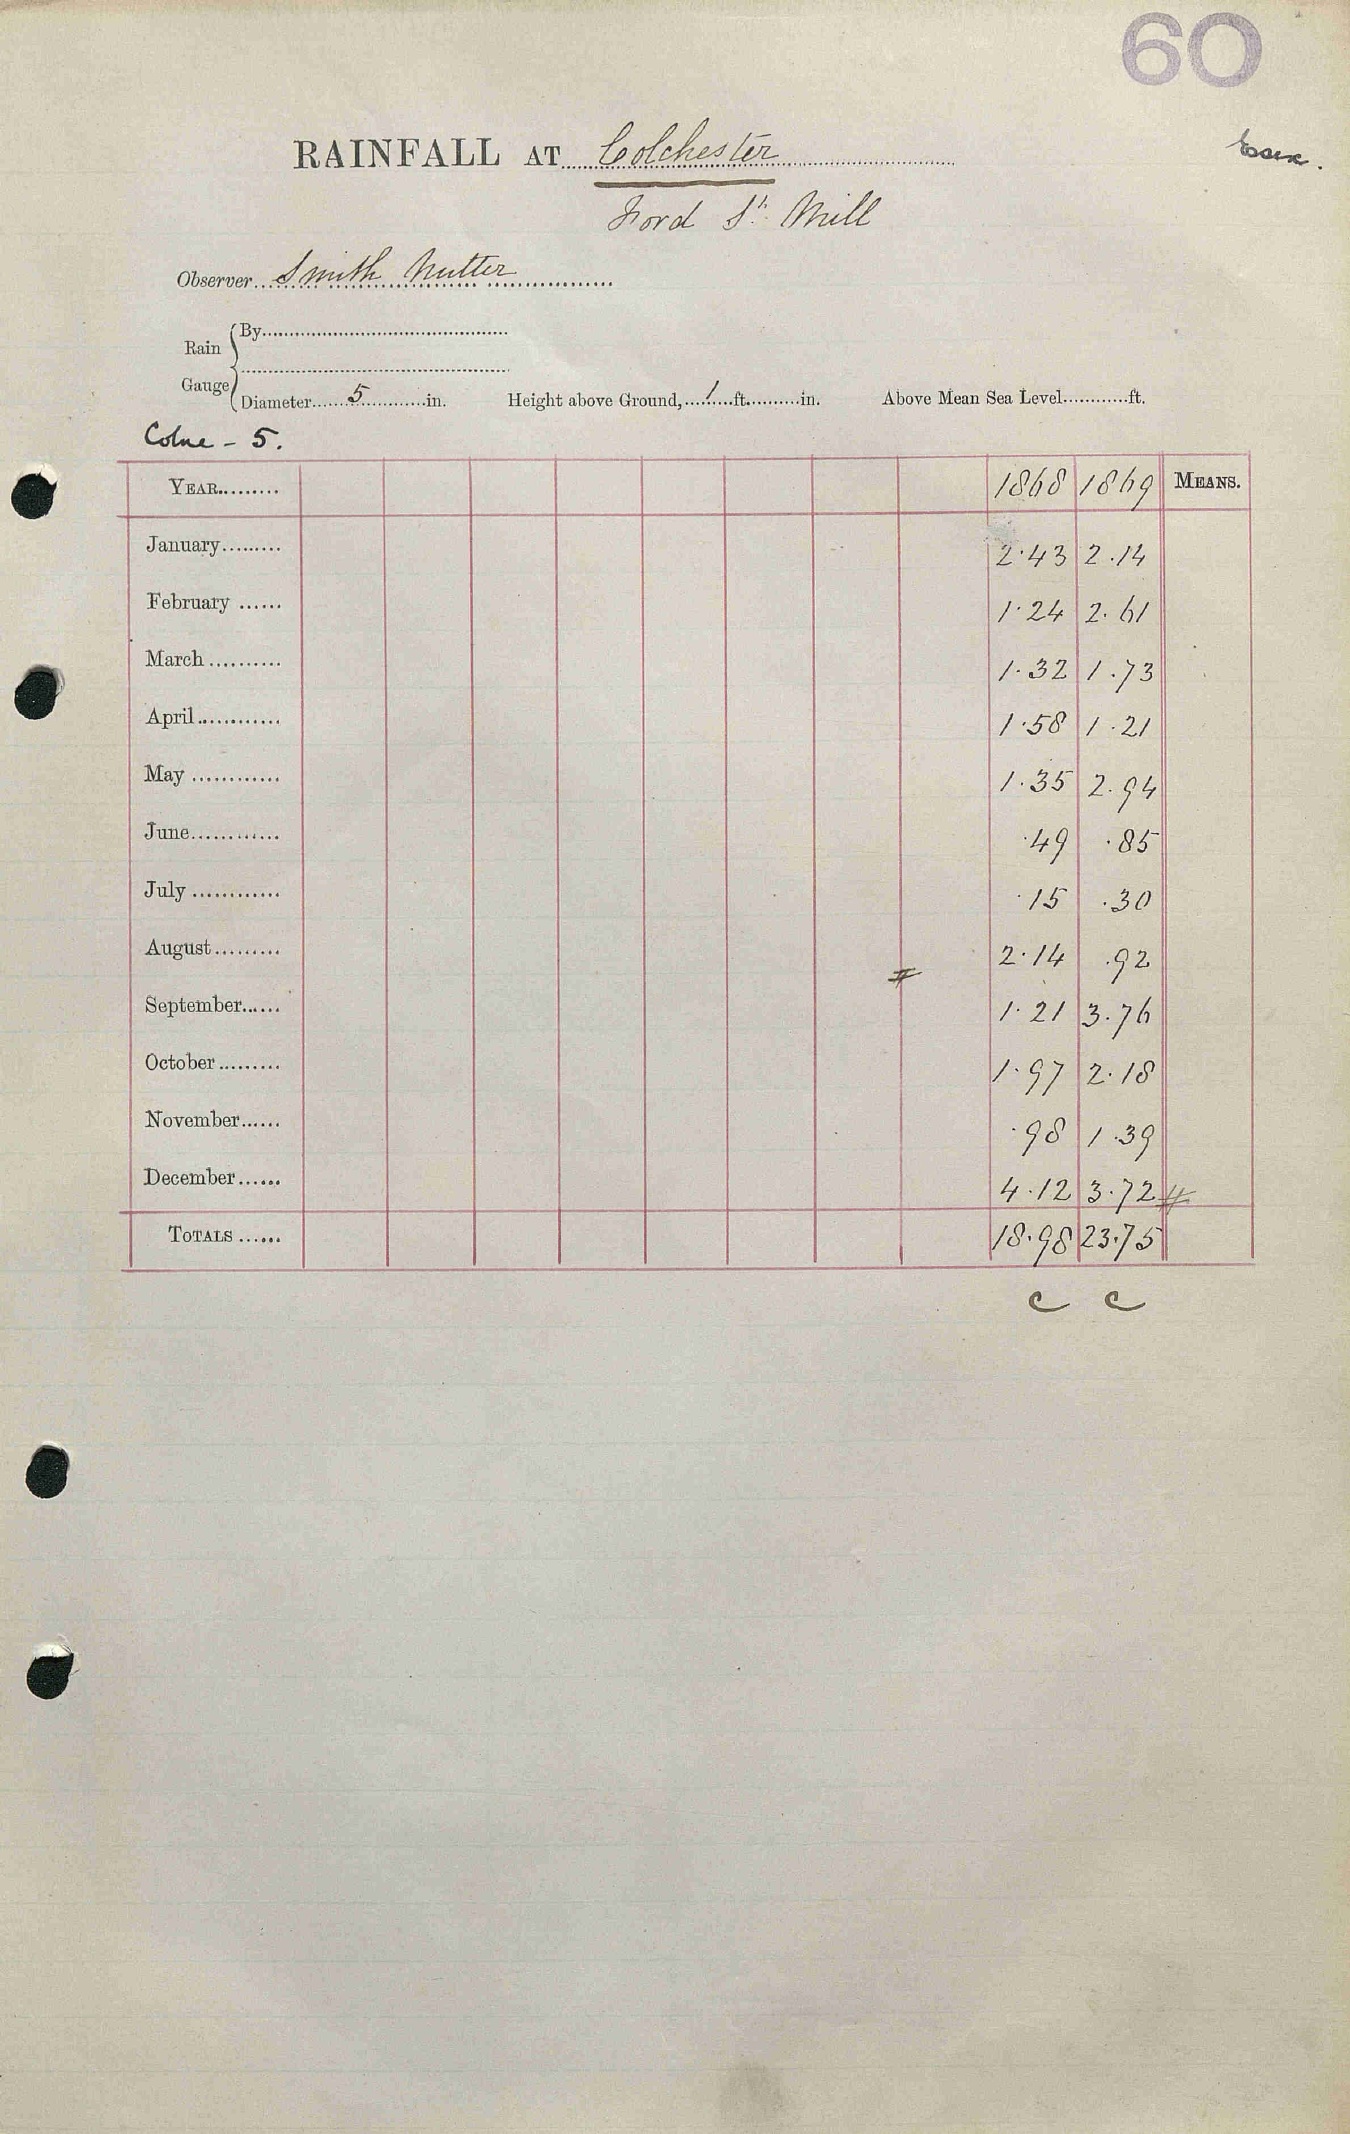 60
RAINFALL AT Colchester
Essex.
Ford St. Mill
Observer Smith Nutter
Rain Gauge
By
Diameter 5 in. Height above Ground, 1 ft. in. Above Mean Sea Level ft.
Colne - 5.
YEAR 1868 1869 MEANS.
January 2.43 2.14
February 1.24 2.61
March 1.32 1.73
April 1.58 1.21
May 1.35 2.94
June .49 .85
July .15 .30
August 2.14 .92
September 1.21 3.76
October 1.97 2.18
November .98 1.39
December 4.12 3.72
TOTALS 18.98 23.75
c c